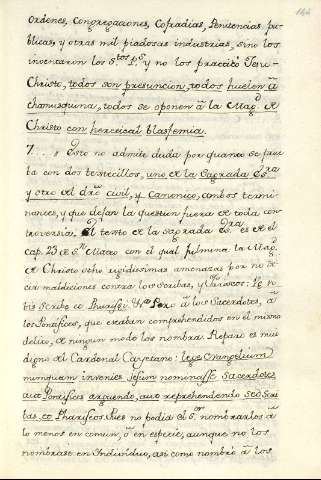 144
Ordenes, Congregaciones, Cofradias, Penitencias pu-
blicas, y otras mil piadosas industrias, sino los
inventaron los S.tos P.s y no los practicó Jesu-
Christo, todos son presuncion, todos huelen â
chamusquina, todos se oponen â la Mag.d de
Christo con heretical blasfemia.
7.... Esto no admite duda por quanto se prue
ba con dos textecillos, uno de la Sagrada Es.ra
y otro del dro civil, y Canonico, ambos termi-
nantes, y que dejan la question fuera de toda con
troversia. El texto de la sagrada Es.ra es el del
cap. 23 de S.n Mateo con el qual fulmina la Mag.d
de Christo ocho rigidissimas amenazas por no de
cir maldiciones contra los Scribas, y Phariseos: Ve vo
bis Scribe et Pharisei &.a Pero â los Sacerdotes, â
los Pontifices, que estaban comprehendidos en el mismo
delito, de ningun modo los nombra. Reparo es mui
digno del Cardenal Cayetano: leges Evangelium
nunquam invenies Jesum nominasse Sacerdotes
aut Pontifices arguendo, aut reprehendendo sed Scri
bas, et Phariseos. Pues no podia el S.or nombrarlos â
lo menos en comun, ô en especie, aunque no los
nombrase en Individuo, asi como nombró â los